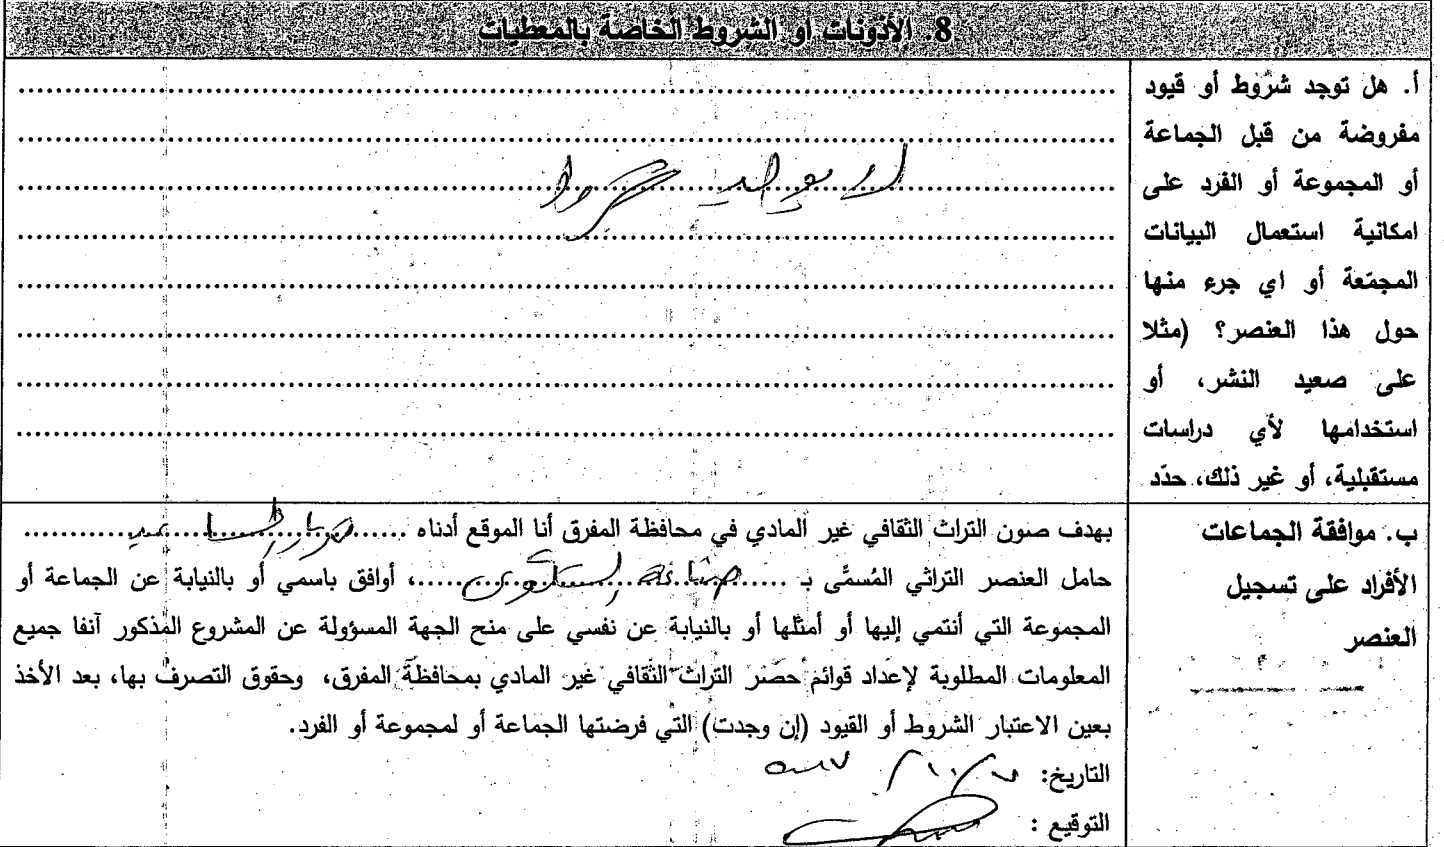 8. الأذونات أو الشروط الخاصة بالمعطيات
أ. هل توجد شروط أو قيود
مفروضة من قبل الجماعة
أو المجموعة أو الفرد على
امكانية استعمال البيانات
المجمّعة أو اي جرء منها
حول هذا العنصر؟ (مثلا
على صعيد النشر، أو
استخدامها لأي دراسات
مستقبلية، أو غير ذلك، حدّد
لا يوجد
ب. موافقة الجماعات
الأفراد على تسجيل
العنصر
بهدف صون التراث الثقافي غير المادي في محافظة المفرق أنا الموقع أدناه
حامل العنصر التراثي المُسمَّى بـ ، أوافق باسمي أو بالنيابة عن الجماعة أو
المجموعة التي أنتمي إليها أو أمثلها أو بالنيابة عن نفسي على منح الجهة المسؤولة عن المشروع المذكور آنفا جميع
المعلومات المطلوبة لإعداد قوائم حصر التراث الثقافي غير المادي بمحافظة المفرق، وحقوق التصرف بها، بعد الأخذ
بعين الاعتبار الشروط أو القيود (إن وجدت) التي فرضتها الجماعة أو لمجموعة أو الفرد.
التاريخ:
التوقيع :